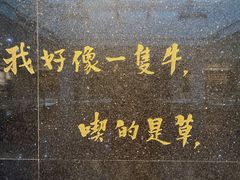 我好像一隻牛，
喫的是草，